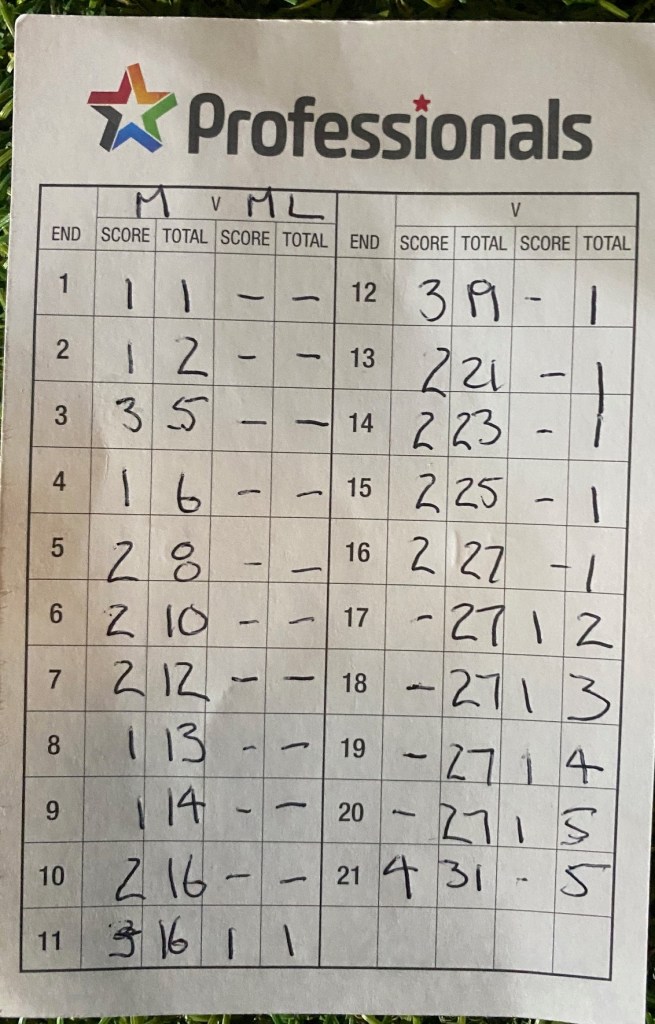 Professionals
M V ML V
END SCORE TOTAL SCORE TOTAL END SCORE TOTAL SCORE TOTAL
1 1 1 - - 12 3 19 - 1
2 1 2 - - 13 2 21 - 1
3 3 5 - - 14 2 23 - 1
4 1 6 - - 15 2 25 - 1
5 2 8 - - 16 2 27 - 1
6 2 10 - - 17 - 27 1 2
7 2 12 - - 18 - 27 1 3
8 1 13 - - 19 - 27 1 4
9 1 14 - - 20 - 27 1 5
10 2 16 - - 21 4 31 - 5
11 16 1 1